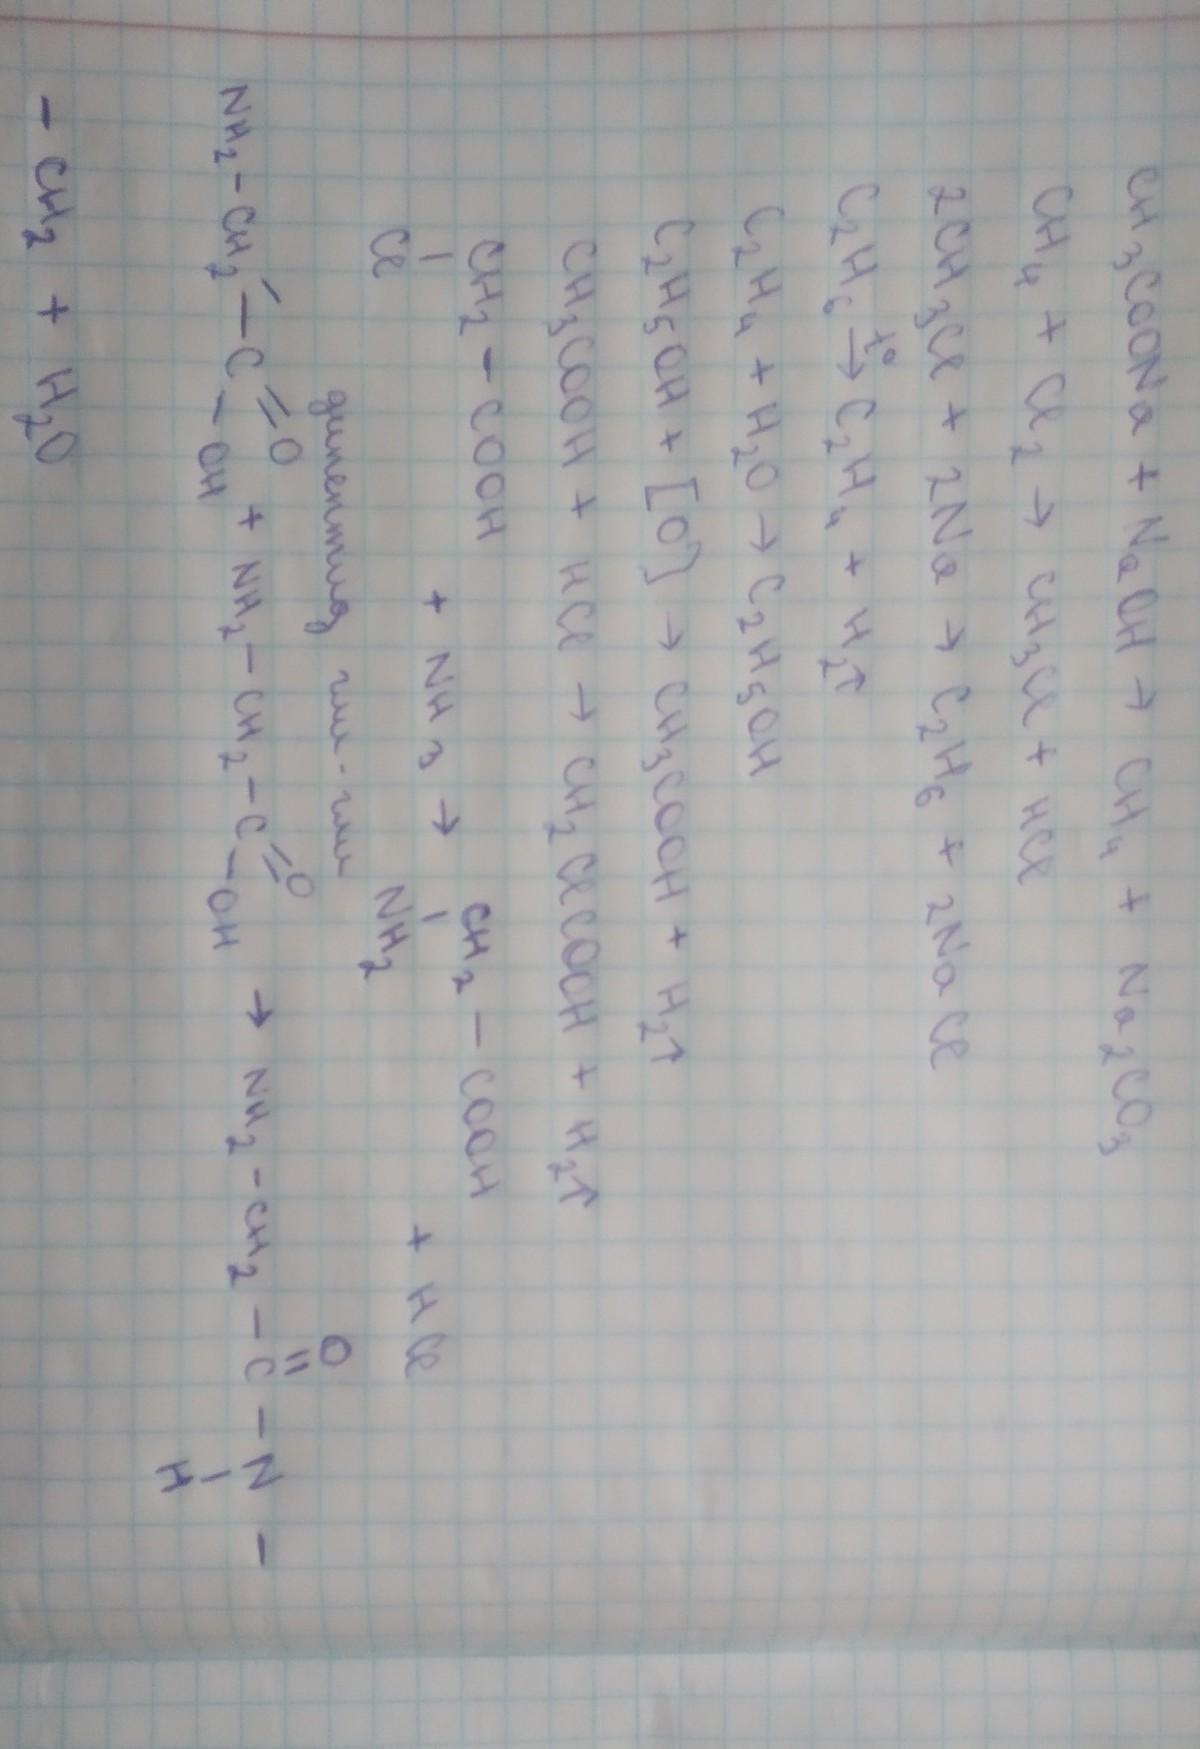 CH₃COONa + NaOH → CH₄ + Na₂CO₃
CH₄ + Cl₂ → CH₃Cl + HCl
2CH₃Cl + 2Na → C₂H₆ + 2NaCl
C₂H₆ →t° C₂H₄ + H₂↑
C₂H₄ + H₂O → C₂H₅OH
C₂H₅OH + [O] → CH₃COOH + H₂↑
CH₃COOH + HCl → CH₂ClCOOH + H₂↑
CH₂ – COOH + NH₃ → CH₂ – COOH + HCl
Cl NH₂
дипептид гли-гли
NH₂ – CH₂ – C =O – OH + NH₂ – CH₂ – C =O – OH → NH₂ – CH₂ – C =O – N –
H
– CH₂ + H₂O